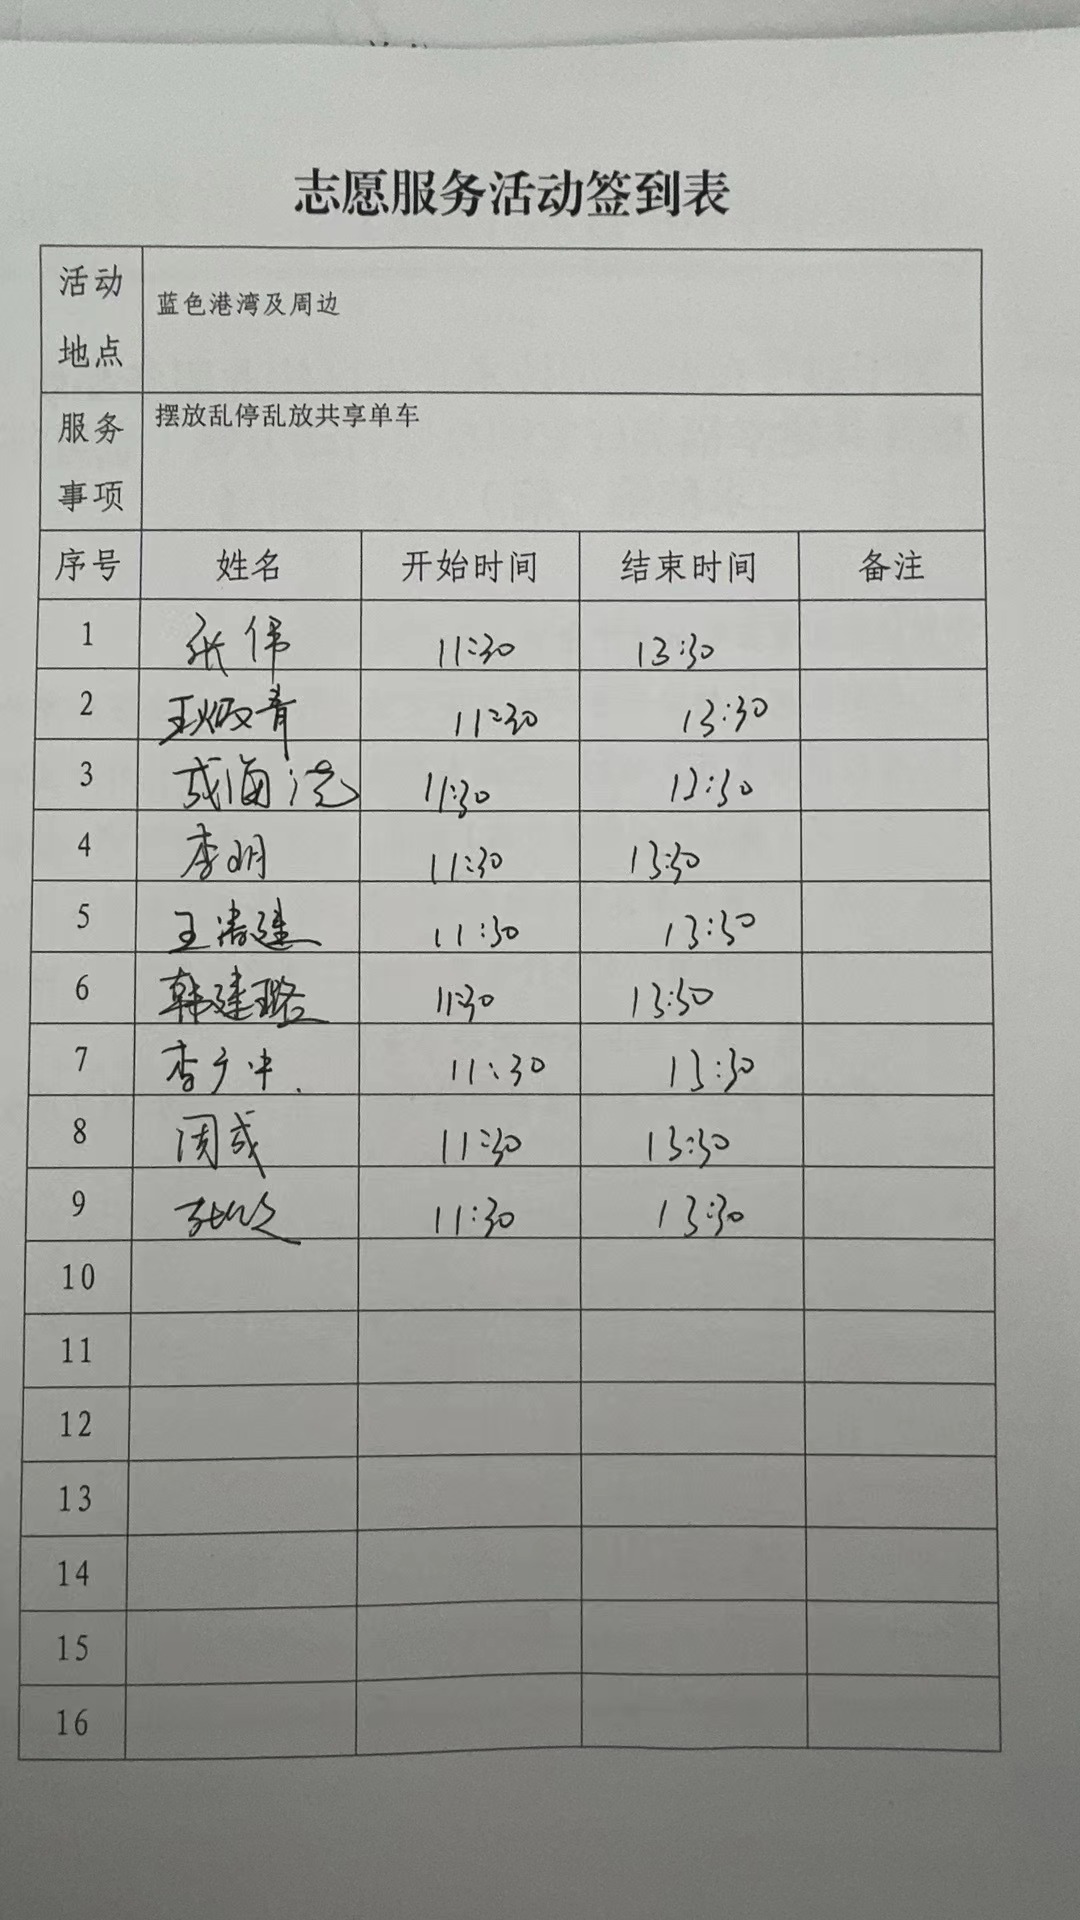 志愿服务活动签到表
活动地点 蓝色港湾及周边
服务事项 摆放乱停乱放共享单车
序号 姓名 开始时间 结束时间 备注
1 张伟 11:30 13:30
2 11:30 13:30
3 11:30 13:30
4 李明 11:30 13:30
5 王涛建 11:30 13:30
6 韩建璐 11:30 13:30
7 李广中 11:30 13:30
8 周彧 11:30 13:30
9 11:30 13:30
10
11
12
13
14
15
16